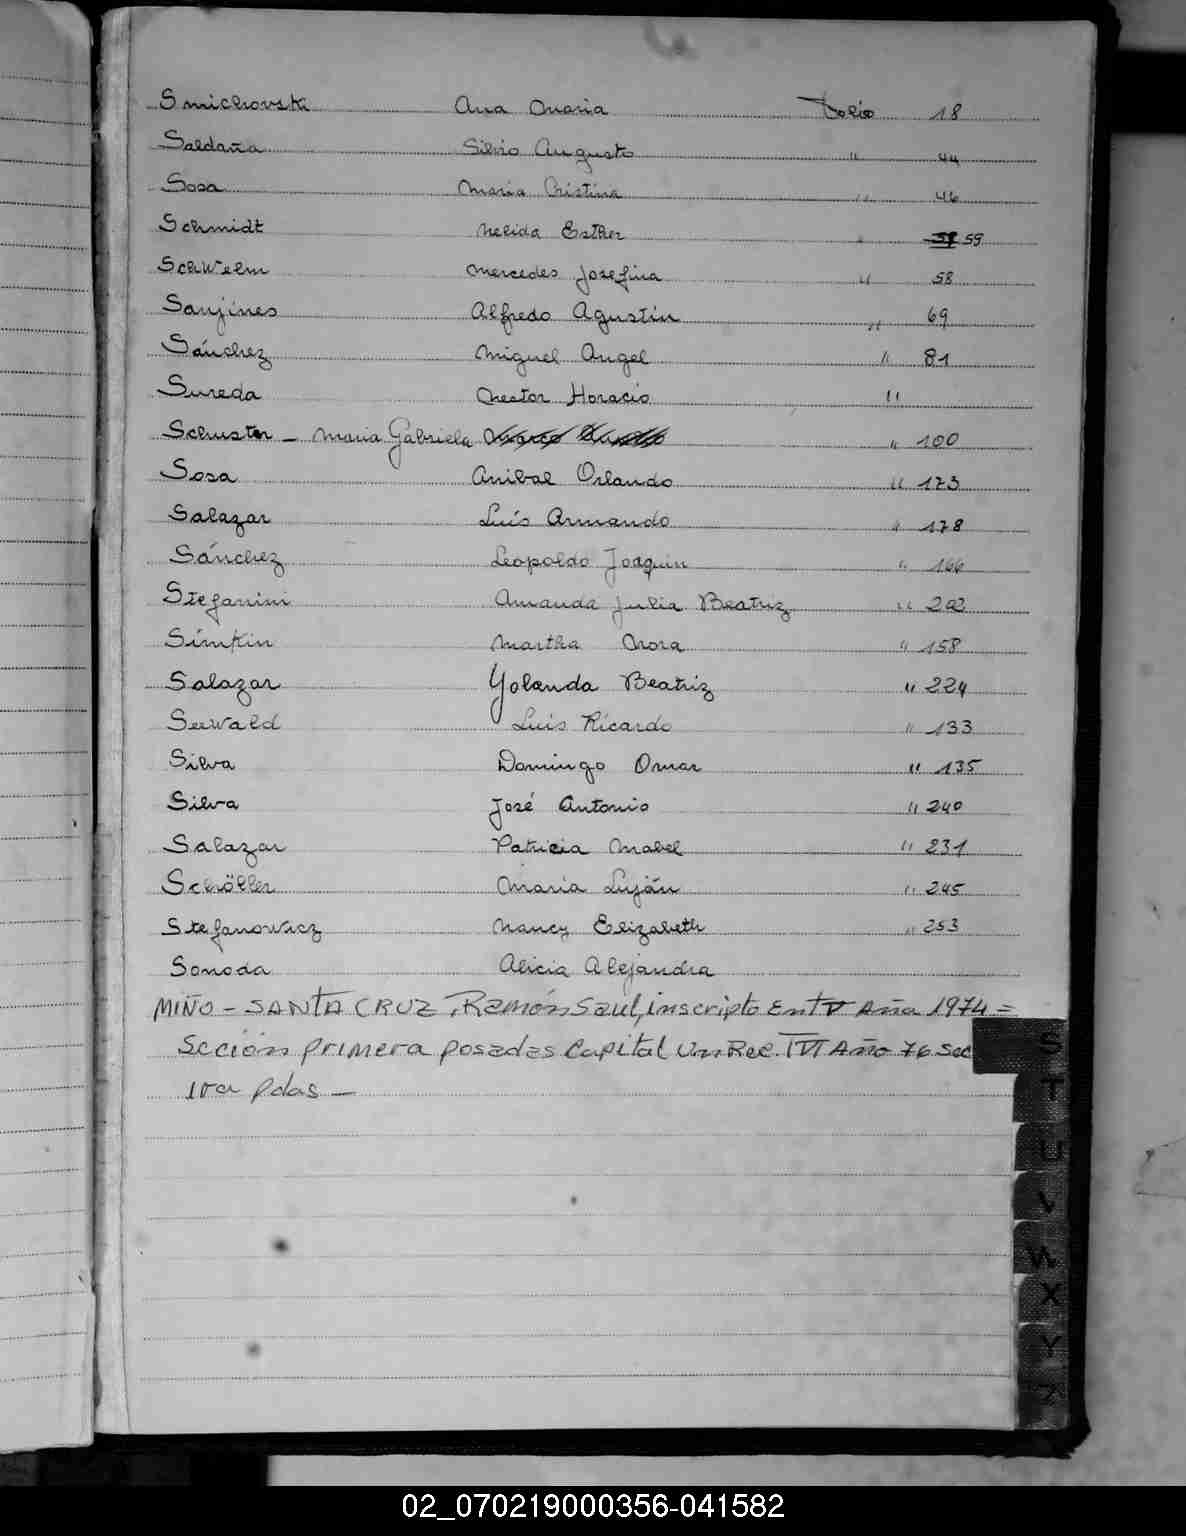 Smichovski Ana Maria Folio 18
Saldaña Silvio Augusto " 44
Sosa Maria Cristina " 46
Schmidt Nelida Esther " 59
Schwelm Mercedes Josefina " 58
Sanjines Alfredo Agustin " 69
Sánchez Miguel Angel " 81
Sureda Nestor Horacio "
Schuster - Maria Gabriela " 100
Sosa Anibal Orlando " 173
Salazar Luis Armando " 178
Sánchez Leopoldo Joaquin " 166
Stefanini Amanda Julia Beatriz " 202
Simkin Martha Nora " 158
Salazar Yolanda Beatriz " 224
Seewald Luis Ricardo " 133
Silva Domingo Omar " 135
Silva José Antonio " 240
Salazar Patricia Mabel " 231
Schöller Maria Luján " 245
Stefanowicz Nancy Elizabeth " 253
Sonoda Alicia Alejandra
MIÑO - SANTA CRUZ, Ramón Saul, inscripto En Año 1974 =
Scción primera posadas Capital Año 76 Sec
1ra pdas -
S
T
U
V
W
X
Y
Z
02_070219000356-041582